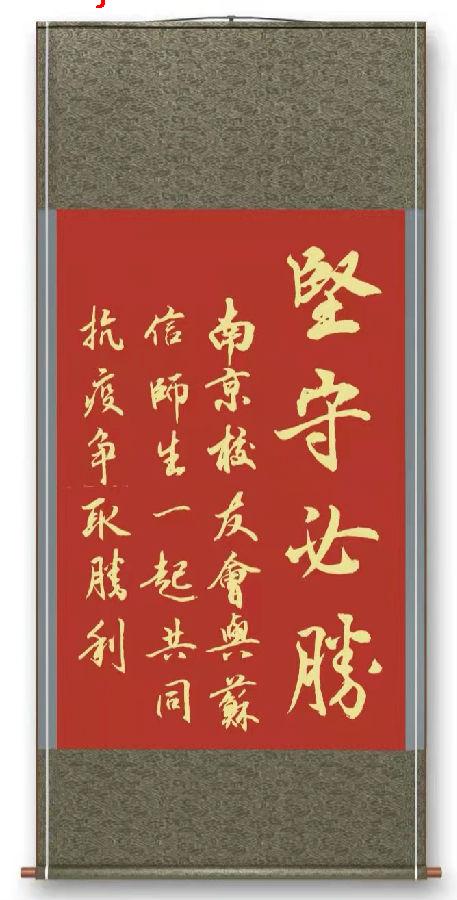 堅守必勝
南京校友會與蘇
信師生一起共同
抗疫争取勝利